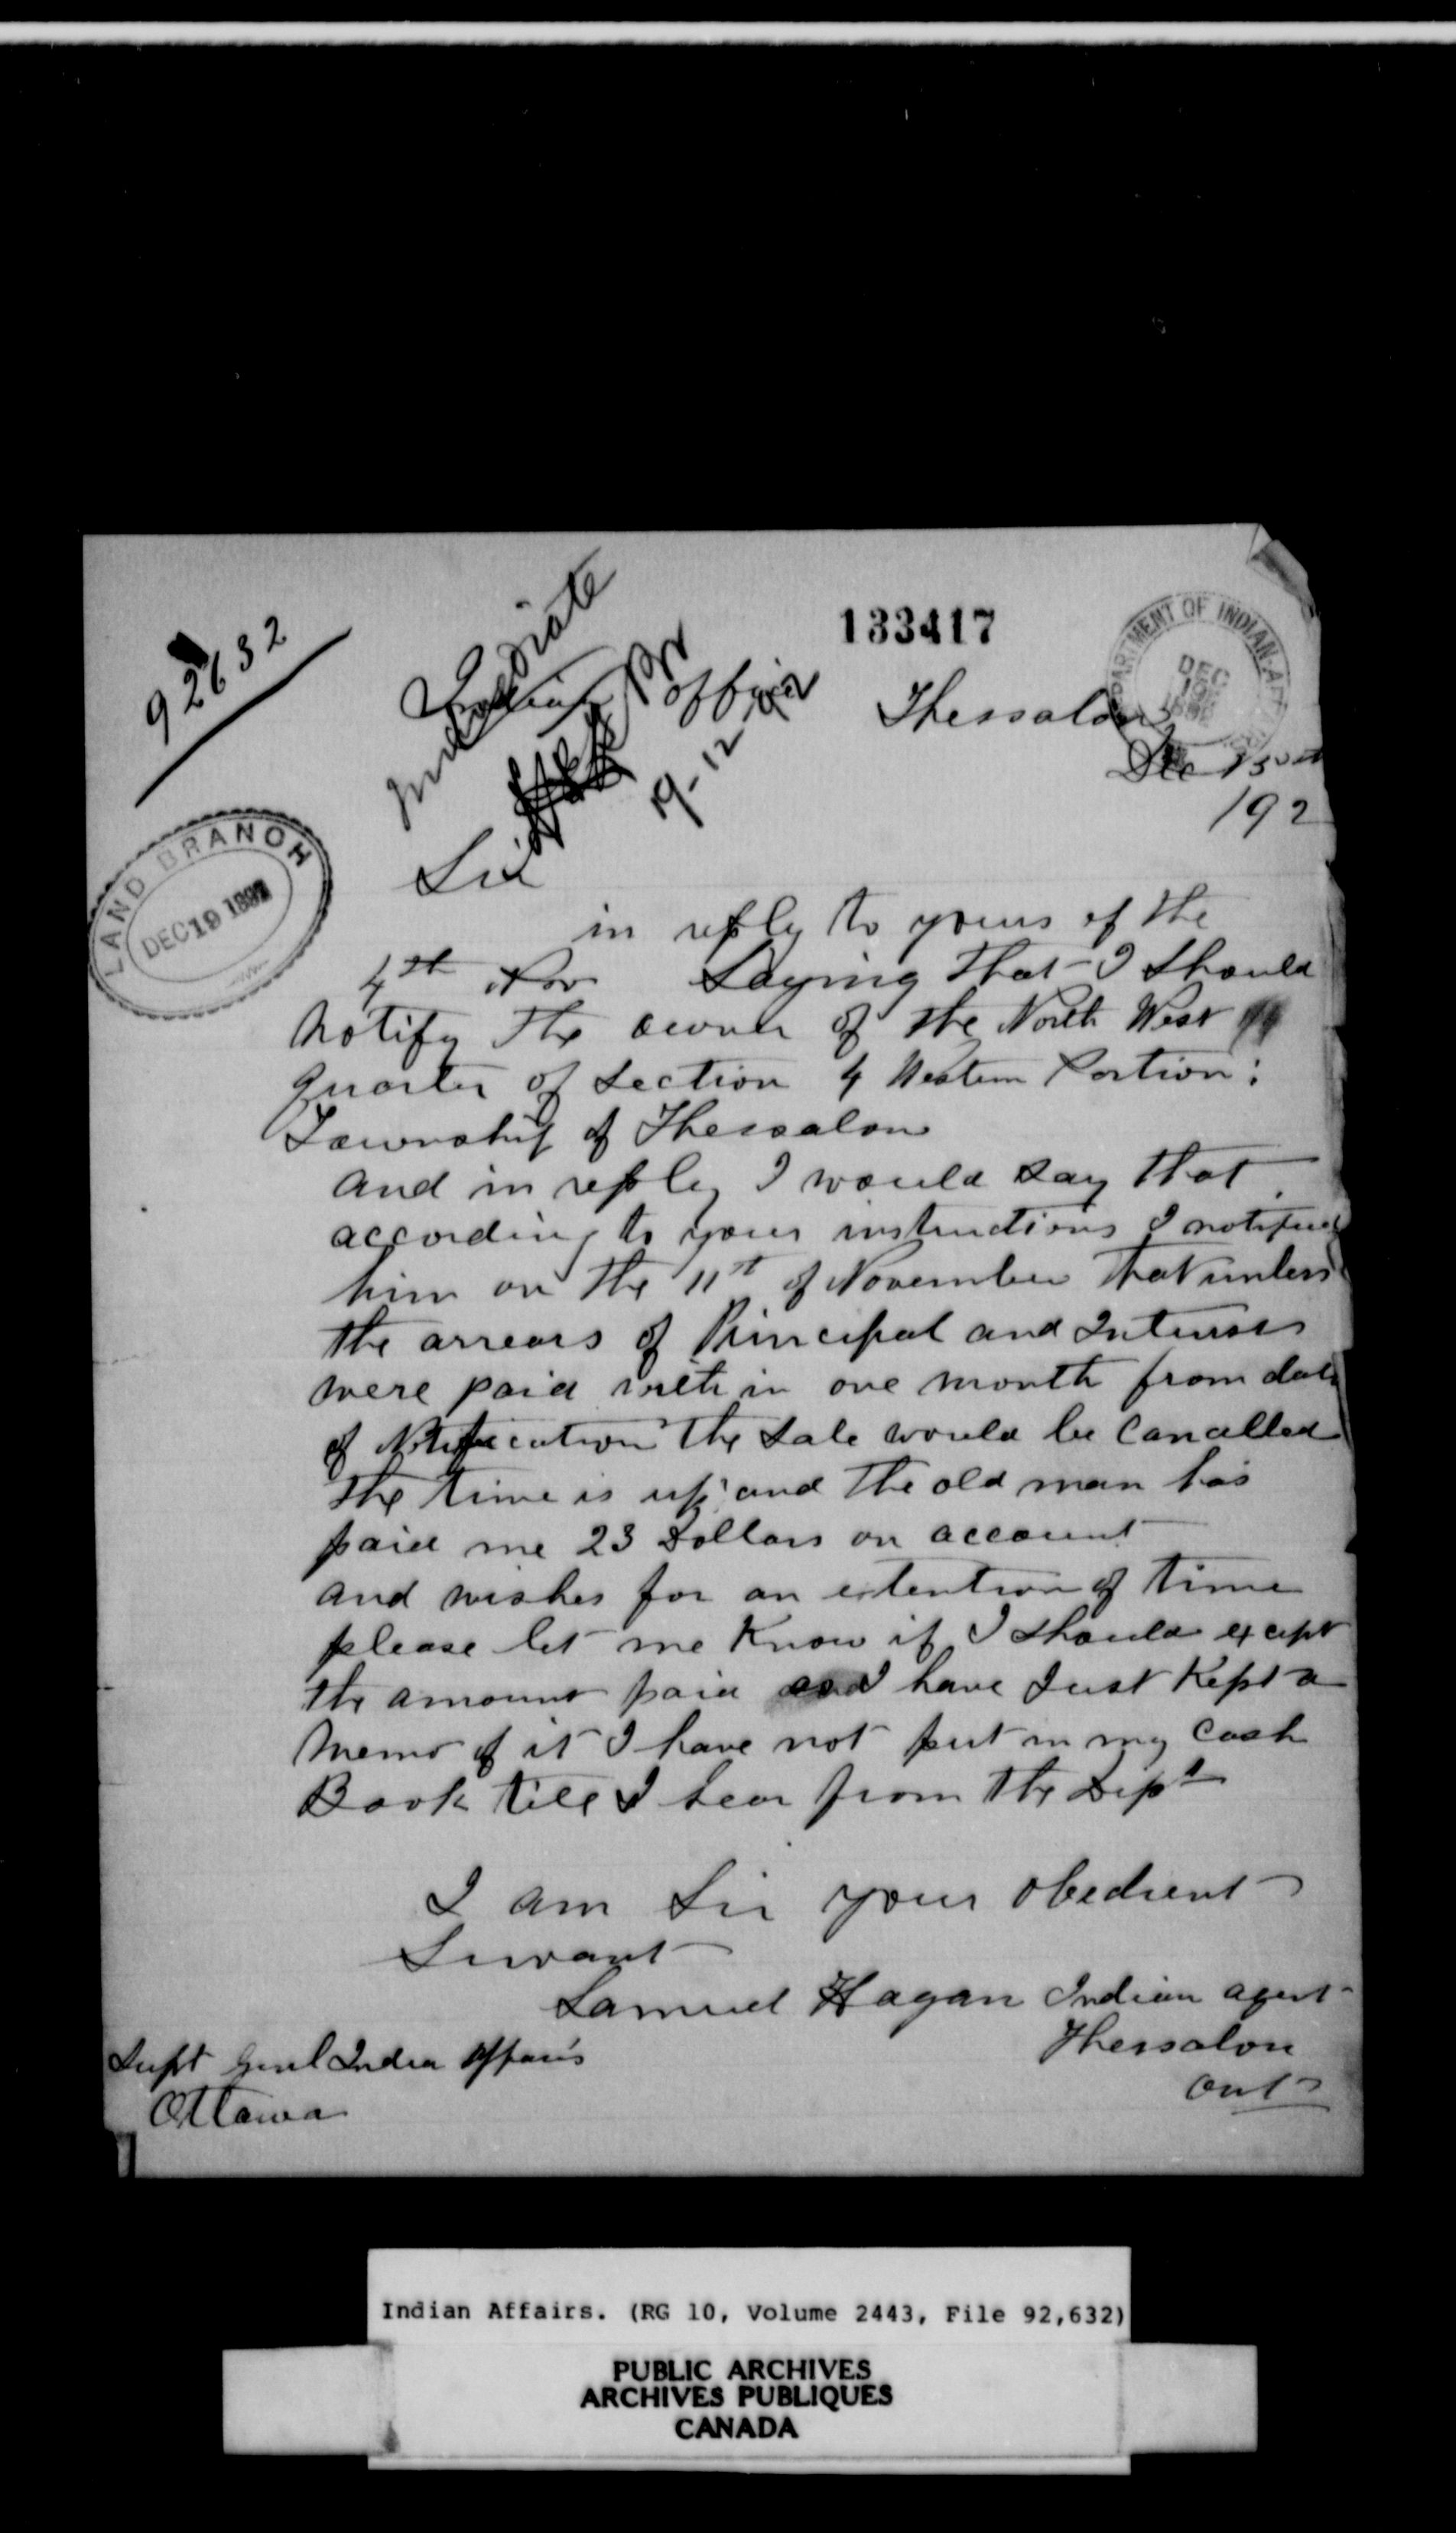 92632
Immediate
133417
DEPARTMENT OF INDIAN AFFAIRS
DEC 19
Indian Office
Thessalon
19-12-92
Dec 15th
192
LAND BRANCH
DEC 19 1892
Sir
in reply to yours of the
4th Nov Saying that I should
Notify the owner of the North West
quarter of Section 4 Western Portion:
Township of Thessalon
and in reply I would say that
according to your instructions I notified
him on the 11th of November that unless
the arrears of Principal and Interest
were paid with in one month from date
of Notification the Sale would be Cancelled
the time is up and the old man has
paid me 23 Dollars on account
and wishes for an extention of time
please let me Know if I should except
the amount paid and I have Just Kept a
Memo of it I have not put in my Cash
Book till I hear from the Dept
I am Sir your obedient
Servant
Samuel Hagan Indian agent
Thessalon
Ont
Supt Genl India Affairs
Ottawa
Indian Affairs. (RG 10, Volume 2443, File 92,632)
PUBLIC ARCHIVES
ARCHIVES PUBLIQUES
CANADA